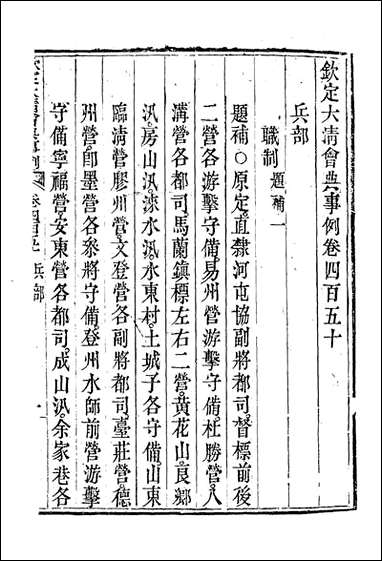 欽定大清會典事例卷四百五十
兵部
職制題補一
題補○原定直隸河屯協副將都司督標前後
二營各游擊守備易州營游擊守備杜勝營八
溝營各都司馬蘭鎮標左右二營黃花山良鄉
汛房山汛淶水汛水東村土城子各守備山東
臨清營膠州營文登營各副將都司臺莊營德
州營卽墨營各參將守備登州水師前營游擊
守備寧福營安東營各都司成山汛佘家巷各
兵部